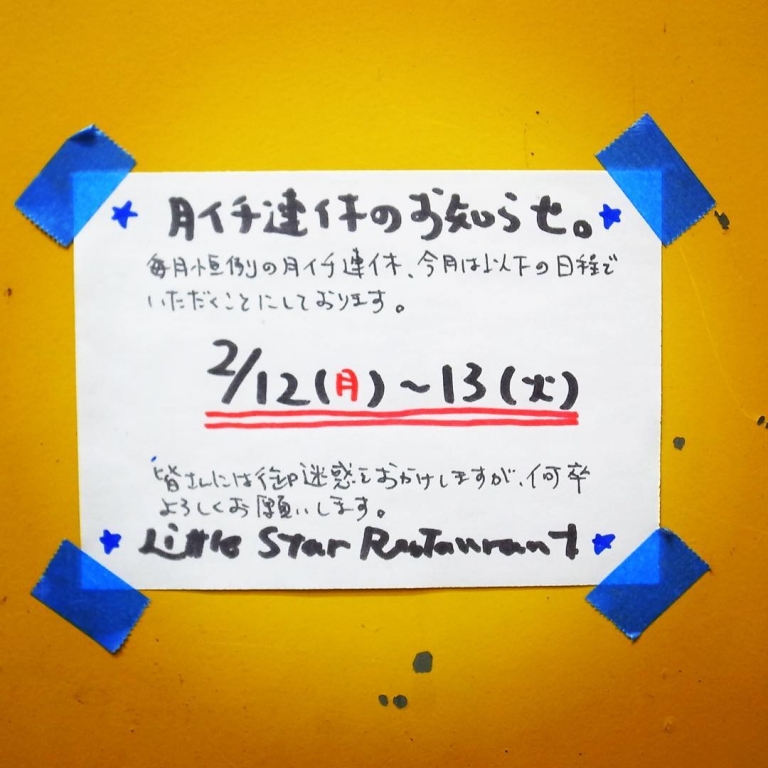 ★月イチ連休のお知らせ。★
毎月恒例の月イチ連休、今月は以下の日程で
いただくことにしております。
2/12(月)～13(火)
皆さんには御迷惑をおかけしますが、何卒
よろしくお願いします。
★Little Star Restaurant★